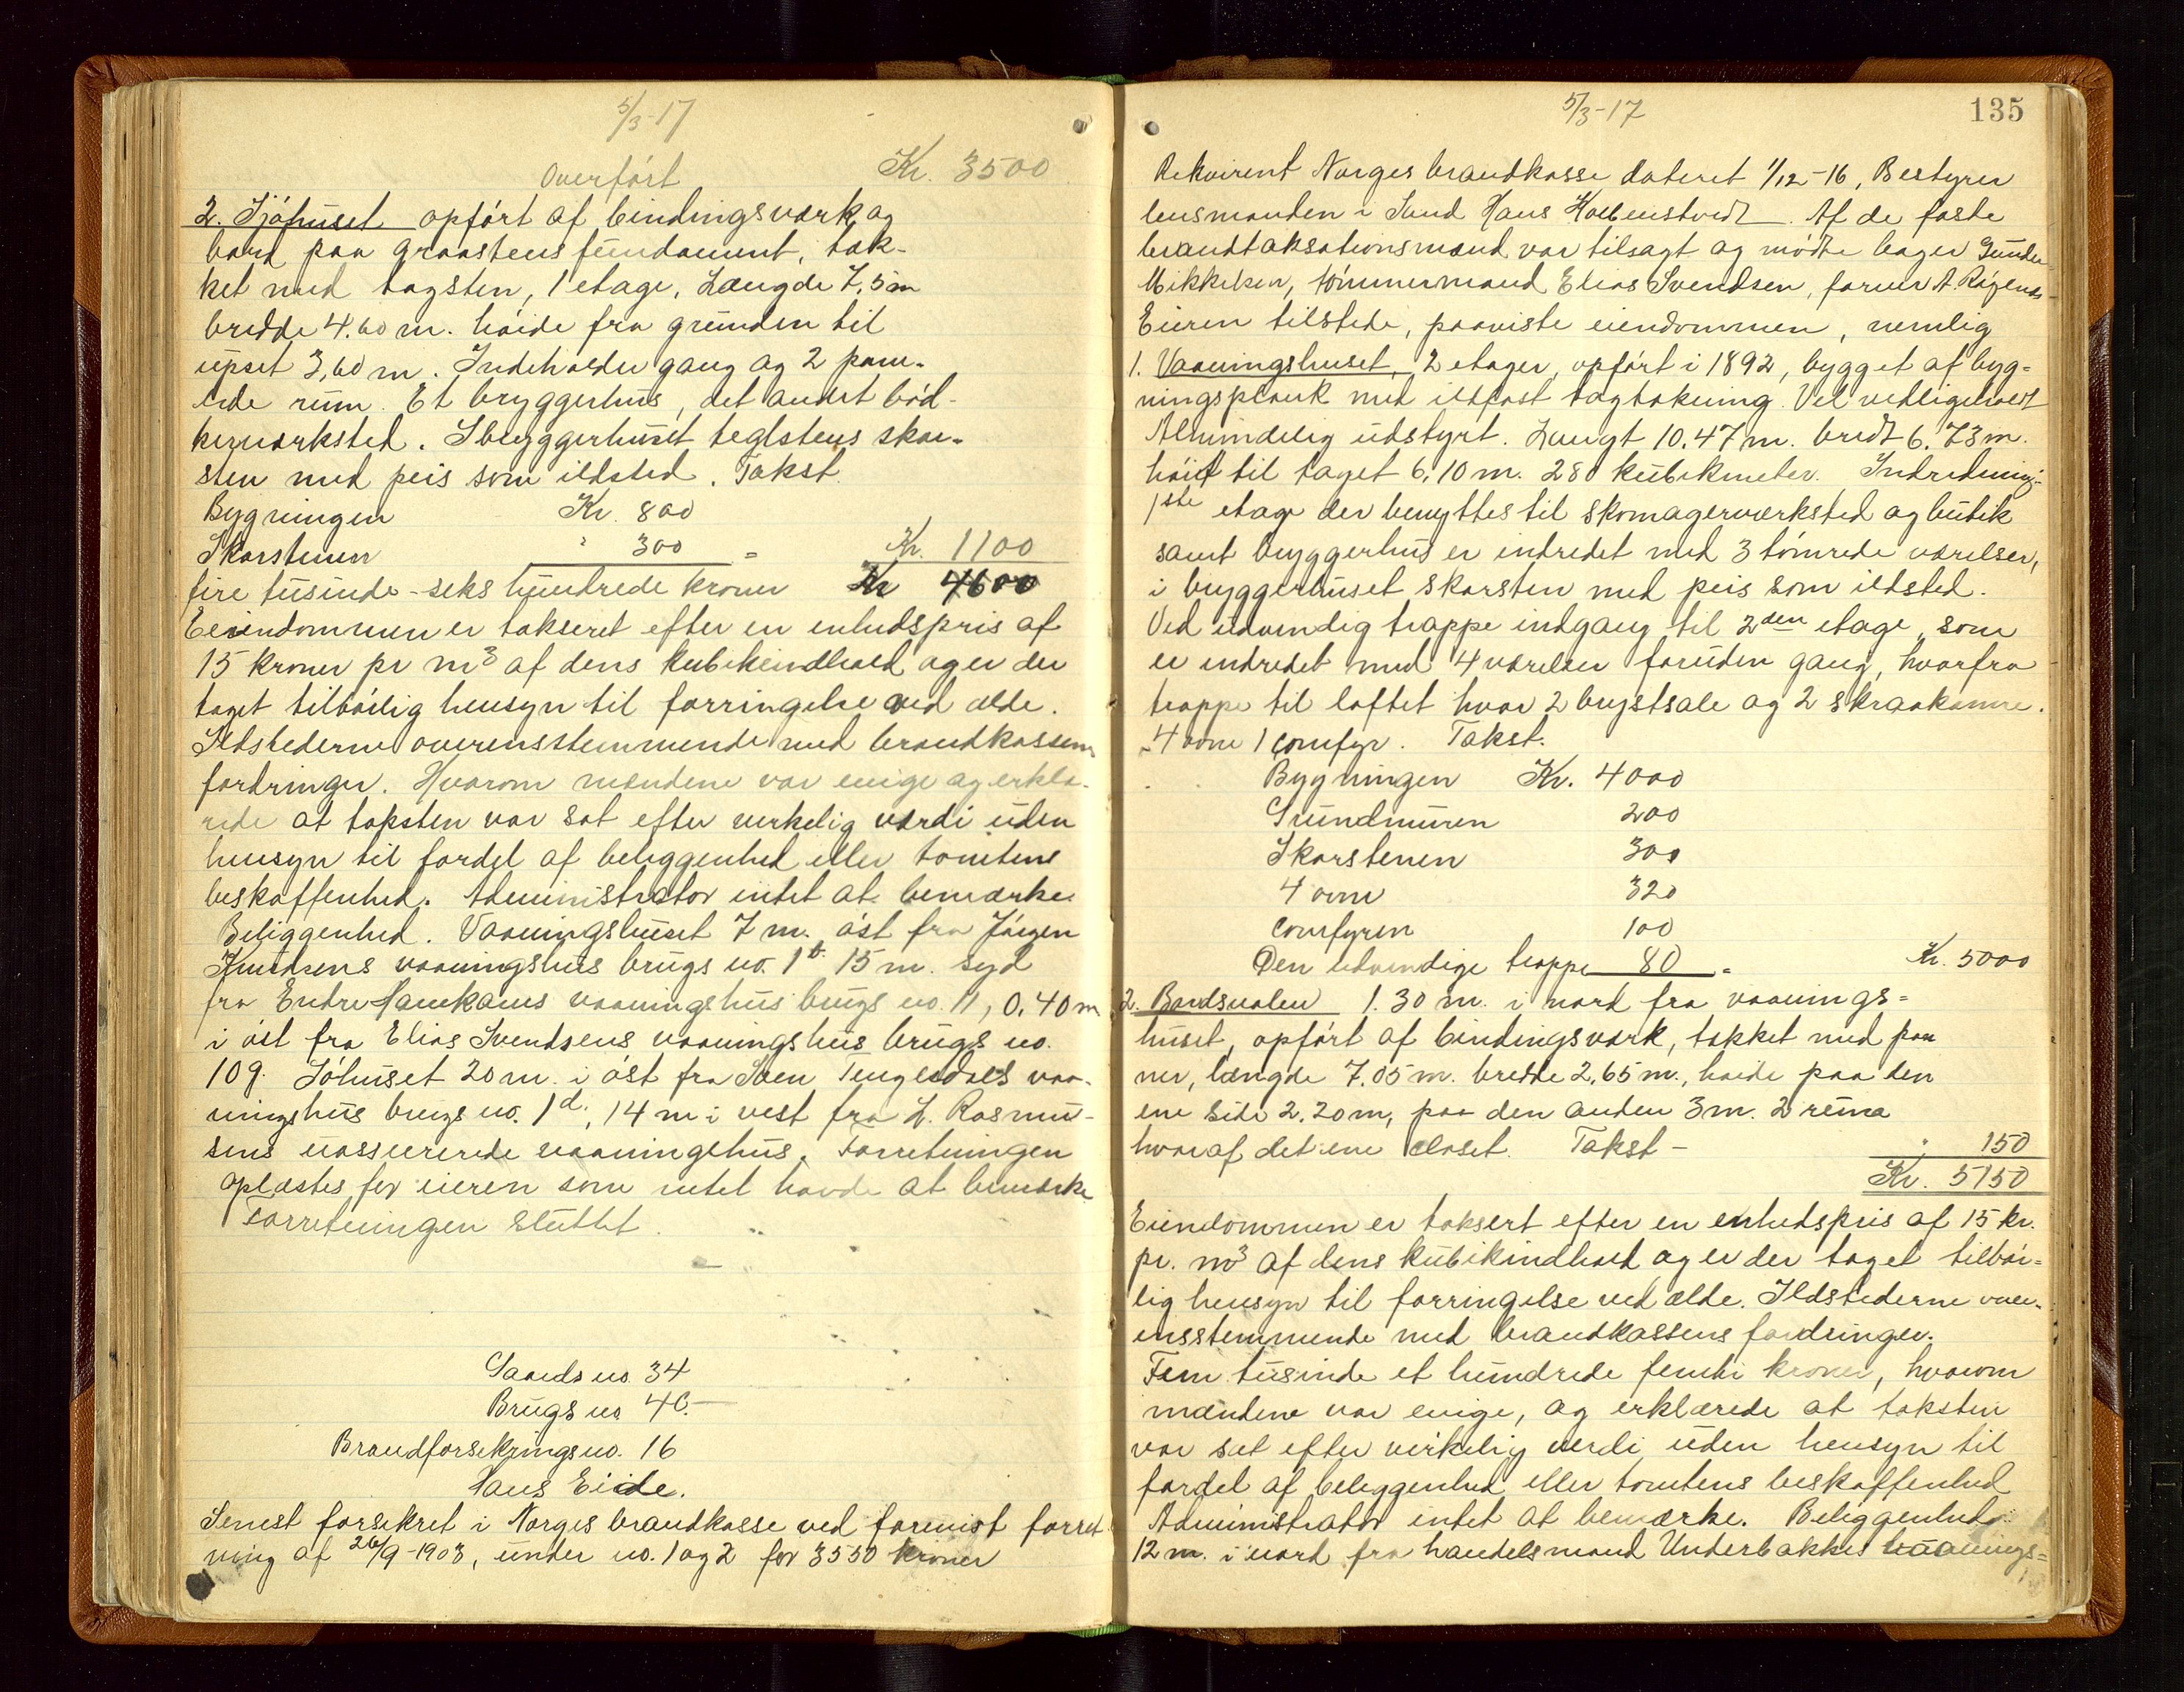 5/3-17
Overført Kr. 3500
2. Sjøhuset opført af bindingsværk og
bord paa graastens fundament, tæk-
ket med tagsten, 1 etage, Længde 7.5 m
bredde 4.60 m. høide fra grunden til
upset 3,60 m. Indeholder gang og 2 pan-
elede rum. Et bryggerhus, det andet bød-
kerværksted. I bryggerhuset teglstens skor-
sten med peis som ildsted. Takst.
Bygningen Kr. 800
Skorstenen " 300 = Kr. 1100
fire tusinde-seks hundrede kroner Kr 4600
Eiendommen er takseret efter en enhedspris af
15 kroner pr m3 af dens kubikindhold og er der
taget tilbørlig hensyn til forringelse ved ælde.
Ildstederne overensstemmende med brandkassens
fordringer. Hvorom mændene var enige og erklæ-
rede at taksten var sat efter virkelig værdi uden
hensyn til fordel af beliggenhed eller tomtens
beskaffenhed. Administrator intet at bemærke.
Beliggenhed. Vaaningshuset 7 m. øst fra Jørgen
Knudsens vaaningshus brugs no. 1 b. 15 m. syd
fra Endre Hamkams vaaningshus brugs no. 11, 0.40 m
i øst fra Elias Svendsens vaaningshus brugs no.
109. Søhuset 20 m. i øst fra Sven Tengesdals vaa-
ningshus brugs no. 1 d., 14 m i vest fra L. Rasmus-
sens uassurerede vaaningshus. Forretningen
oplæstes for eieren som intet havde at bemærke
Forretningen sluttet.
Gaards no. 34
Brugs no 40.
Brandforsikrings no. 16
Hans Eide.
Senest forsikret i Norges brandkasse ved forenist forret
ning af 26/9-1903, under no. 1 og 2 for 3550 kroner
5/3-17 135
Rekvirent Norges brandkasse dateret 1/12-16, Bestyrer
lensmanden i Sund Hans Halvenstvedt. Af de faste
brandtaksationsmænd var tilsagt og mødte bager Gunder
Mikkelsen, tømmermand Elias Svendsen, farver A. Røgenæs
Eieren tilstede, paaviste eiendommen, nemlig
1. Vaaningshuset, 2 etager, opført i 1892, bygget af byg-
ningsplank med ildfast tagtækning. Vel vedligeholdt
Almindelig udstyrt. Langt 10.47 m. bredt 6.73 m.
høit til taget 6.10 m. 280 kubikmeter. Indredning:
1ste etage der benyttes til skomagerværksted og butik
samt bryggerhus er indredet med 3 tømrede værelser,
i bryggerhuset skorsten med peis som ildsted.
Ved udvendig trappe indgang til 2den etage, som
er indredet med 4 værelser foruden gang, hvorfra
trappe til loftet hvor 2 brystsale og 2 skraakamre.
4 ovne 1 comfyr. Takst.
Bygningen Kr. 4000
Grundmuren 200
Skorstenen 300
4 ovne 320
Comfyren 100
Den udvendige trappe 80 = Kr. 5000
2. Bordsvalen 1.30 m. i nord fra vaanings-
huset, opført af bindingsværk, tækket med pan
ner, længde 7.05 m. bredde 2.65 m., høide paa den
ene side 2.20 m, paa den anden 3 m. 2 rum
hvoraf det ene closet. Takst - " 150
Kr. 5150
Eiendommen er taksert efter en enhedspris af 15 kr.
pr. m3 af dens kubikindhold og er der taget tilbør-
lig hensyn til forringelse ved ælde. Ildstederne over-
ensstemmende med brandkassens fordringer.
Fem tusinde et hundrede femti kroner, hvorom
mændene var enige, og erklærede at taksten
var sat efter virkelig verdi uden hensyn til
fordel af beliggenhed eller tomtens beskaffenhed
Administrator intet at bemærke. Beliggenhed:
12 m. i nord fra handelsmand Underbakkes vaanings-